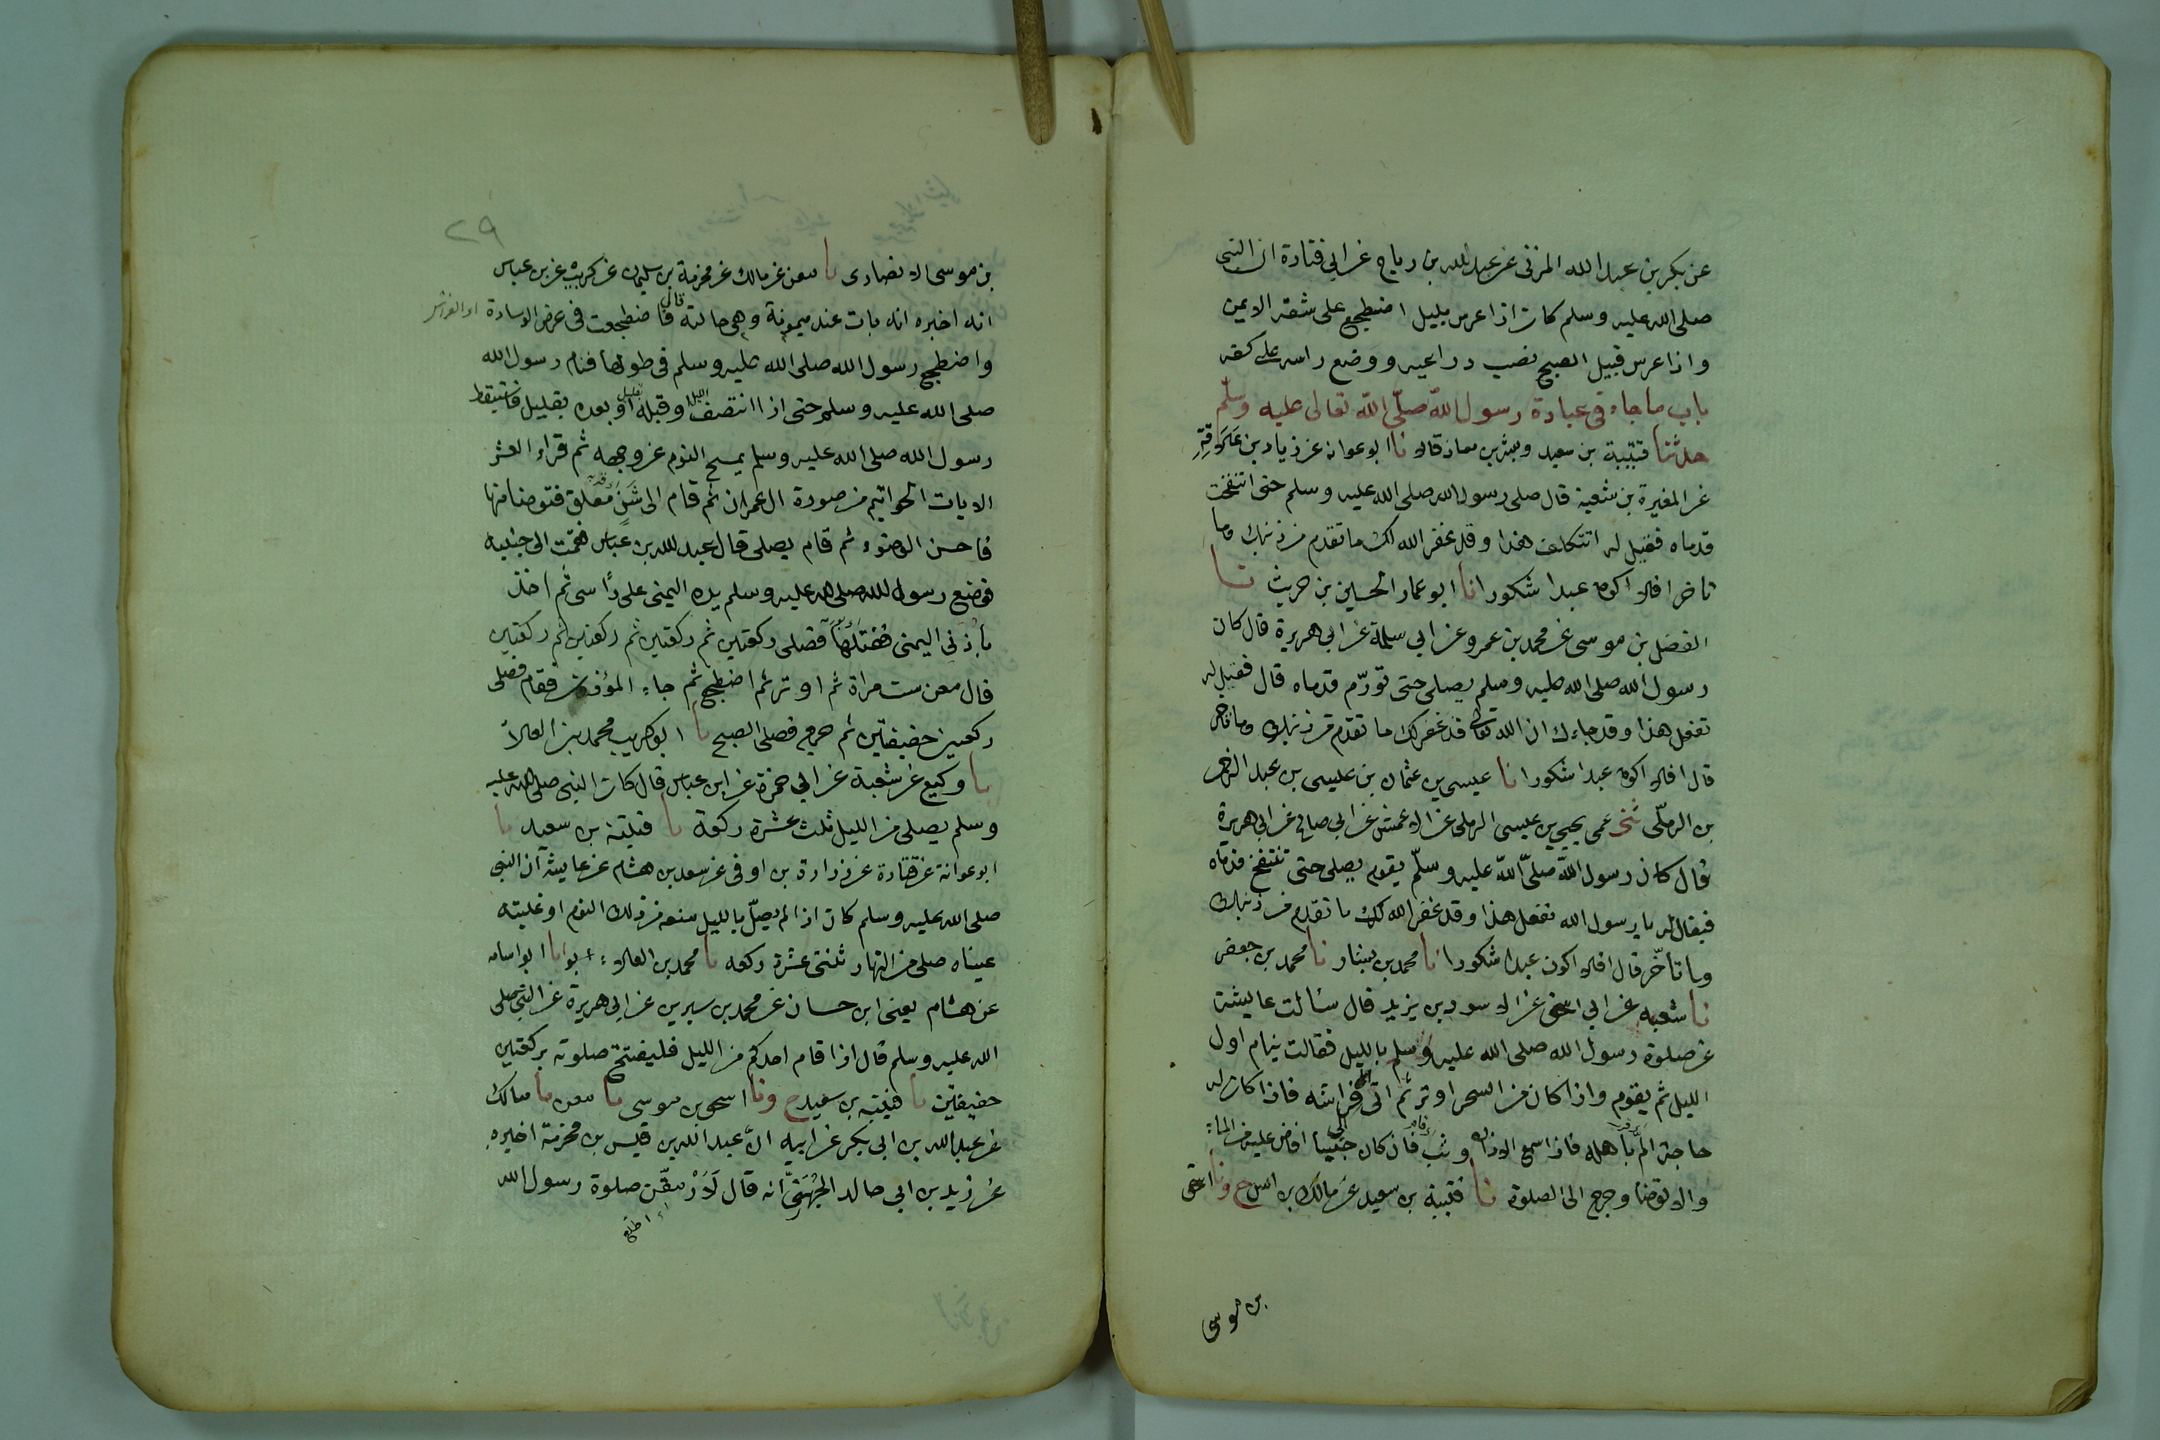 عن بكر بن عبد الله المزنى عن عبد الله بن رباح عن ابى قتادة ان النبى
صلى الله عليه وسلم كان اذا عرس بليل اضطجع على شقه الايمن
واذا عرس قبيل الصبح نصب دراعيه ووضع راسه على كفه
باب ما جاء فى عبادة رسول الله صلى الله تعالى عليه وسلّم
حدثنا قتيبة بن سعيد وبشر بن معاذ قالا نا ابو عوانه عن زياد بن علاقة
عن المغيرة بن شعبة قال صلى رسول الله صلى الله عليه وسلم حتى انتفخت
قدماه فقيل له اتتكلف هذا وقد غفر الله لك ما تقدم من ذنبك وما
تاخر افلا اكون عبدا شكورا انا ابو عمار الحسين بن حريث نا
الفضل بن موسى عن محمد بن عمرو عن ابى سلمة عن ابى هريرة قال كان
رسول الله صلى الله عليه وسلم يصلى حتى تورّم قدماه قال فقيل له
تفعل هذا وقد جاءك ان الله تعالى قد غفر لك ما تقدم من ذنبك وما تاخر
قال افلا اكون عبدا شكورا نا عيسى بن عثمان بن عيسى بن عبد الرحمن
بن الرملّى ثنى عمى يحيى بن عيسى الرملى عن الاعمش عن ابى صالح عن ابى هريرة
قال كان رسول اللّه صلّى اللّه عليه وسلّم يقوم يصلى حتى تنتفخ قدماه
فيقال له يا رسول الله تفعل هذا وقد غفر الله لك ما تقدم من ذنبك
وما تأخّر قال افلا اكون عبدا شكورا نا محمد بن بشار نا محمد بن جعفر
نا شعبه عن ابى اسحق عن الاسود بن يزيد قال سئالت عايشة
عن صلوة رسول الله صلى الله عليه وسلم بالليل فقالت ينام اول
الليل ثم يقوم واذا كان من السحر اوتر ثم اتى فراشه فاذا كان له
حاجة المّ باهله فاذا سمع الاذان وثب فان كان جنبا افاض عليه من الماء
والا توضا وخرج الى الصلوة نا قتيبة بن سعيد عن مالك بن انس ح ونا اسحق
بن موسى
٢٩
بن موسى الانصارى نا معن عن مالك عن مخرمة بن سليمان عن كريب عن ابن عباس
انه اخبره انه بات عند ميمونة وهى خالته قال فاضطجعت فى عرض الوسادة
واضطجع رسول الله صلى الله عليه وسلم فى طولها فنام رسول الله
صلى الله عليه وسلم حتى اذا انتصف الليل او قبله بقليل او بعده بقليل فاستيقظ
رسول الله صلى الله عليه وسلم يمسح النوم عن وجهه ثم قراء العشر
الايات الخواتيم من صورة ال عمران ثم قام الى شَنٍّ معلق فتوضا منها
فاحسن الوضوء ثم قام يصلى قال عبد الله بن عباس فقمت الى جنبه
فوضع رسول الله صلى الله عليه وسلم يده اليمنى على رأسى ثم اخذ
بأذنى اليمنى ففتلها فصلى ركعتين ثم ركعتين ثم ركعتين ثم ركعتين
قال معن ست مراة ثم اوتر ثم اضطجع ثم جاء المؤذن فقام فصلى
ركعتين خفيفتين ثم خرج فصلى الصبح نا ابو كريب محمد بن العلاء
نا وكيع عن شعبة عن ابى حمزة عن ابن عباس قال كان النبى صلى الله عليه
وسلم يصلى من الليل ثلث عشرة ركعة نا قتيبة بن سعيد نا
ابو عوانة عن قتادة عن زرارة بن اوفى عن سعد بن هشام عن عايشة ان النبى
صلى الله عليه وسلم كان اذا لم يصلّ بالليل منعه من ذلك النوم او غلبته
عيناه صلى من النهار ثنتى عشرة ركعه نا محمد بن العلاء نا ابو اسامه
عن هشام يعنى ابن حسان عن محمد بن سيرين عن ابى هريرة عن النبى صلى
الله عليه وسلم قال اذا قام احدكم من الليل فليفتتح صلوته بركعتين
خفيفتين نا قتيبه بن سعيد ح ونا اسحق بن موسى نا معن نا مالك
عن عبد الله بن ابى بكر عن ابيه انّ عبد الله بن قيس بن مخرمة اخبره
عن زيد بن ابى خالد الجُهَنىّ انه قال لَاَرْمقّن صلوة رسول الله